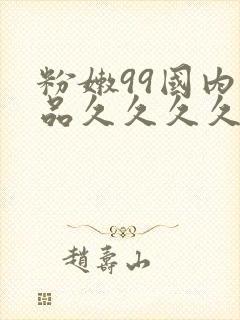 粉嫩99國內
品久久久久
趙壽山